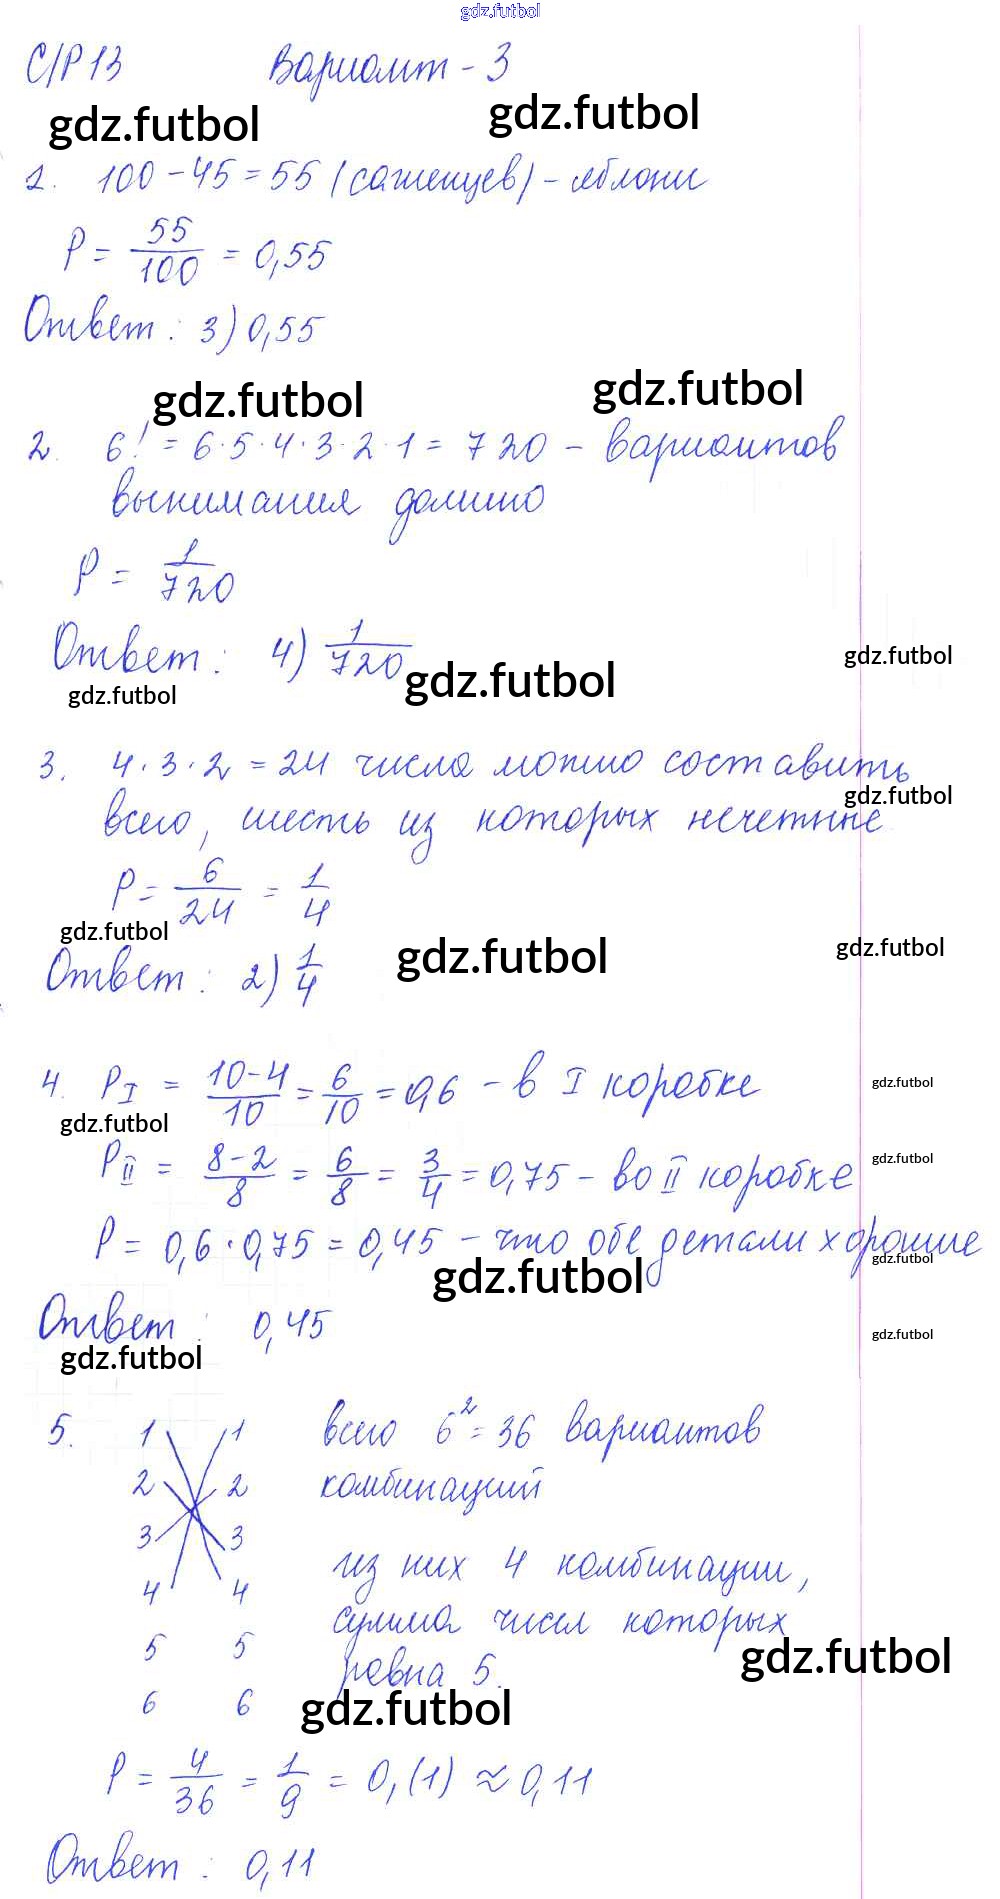 gdz.futbol
С/Р 13 Вариант - 3
gdz.futbol gdz.futbol
1. 100 - 45 = 55 (саженцев) - яблони
P = 55/100 = 0,55
Ответ: 3) 0,55
gdz.futbol gdz.futbol
2. 6! = 6·5·4·3·2·1 = 720 - вариантов
вынимания домино
P = 1/720
Ответ: 4) 1/720
gdz.futbol gdz.futbol gdz.futbol
3. 4·3·2 = 24 числа можно составить
gdz.futbol
всего, шесть из которых нечетные
P = 6/24 = 1/4
gdz.futbol gdz.futbol gdz.futbol
Ответ: 2) 1/4
4. P I = 10-4/10 = 6/10 = 0,6 - в I коробке
gdz.futbol gdz.futbol
P II = 8-2/8 = 6/8 = 3/4 = 0,75 - во II коробке
gdz.futbol
P = 0,6·0,75 = 0,45 - что обе детали хорошие
gdz.futbol gdz.futbol
Ответ: 0,45
gdz.futbol gdz.futbol
5. 1 1 всего 6² = 36 вариантов
2 2 комбинаций
3 3
4 4 из них 4 комбинации,
сумма чисел которых
5 5 равна 5.
gdz.futbol
6 6
gdz.futbol
P = 4/36 = 1/9 = 0,(1) ≈ 0,11
Ответ: 0,11